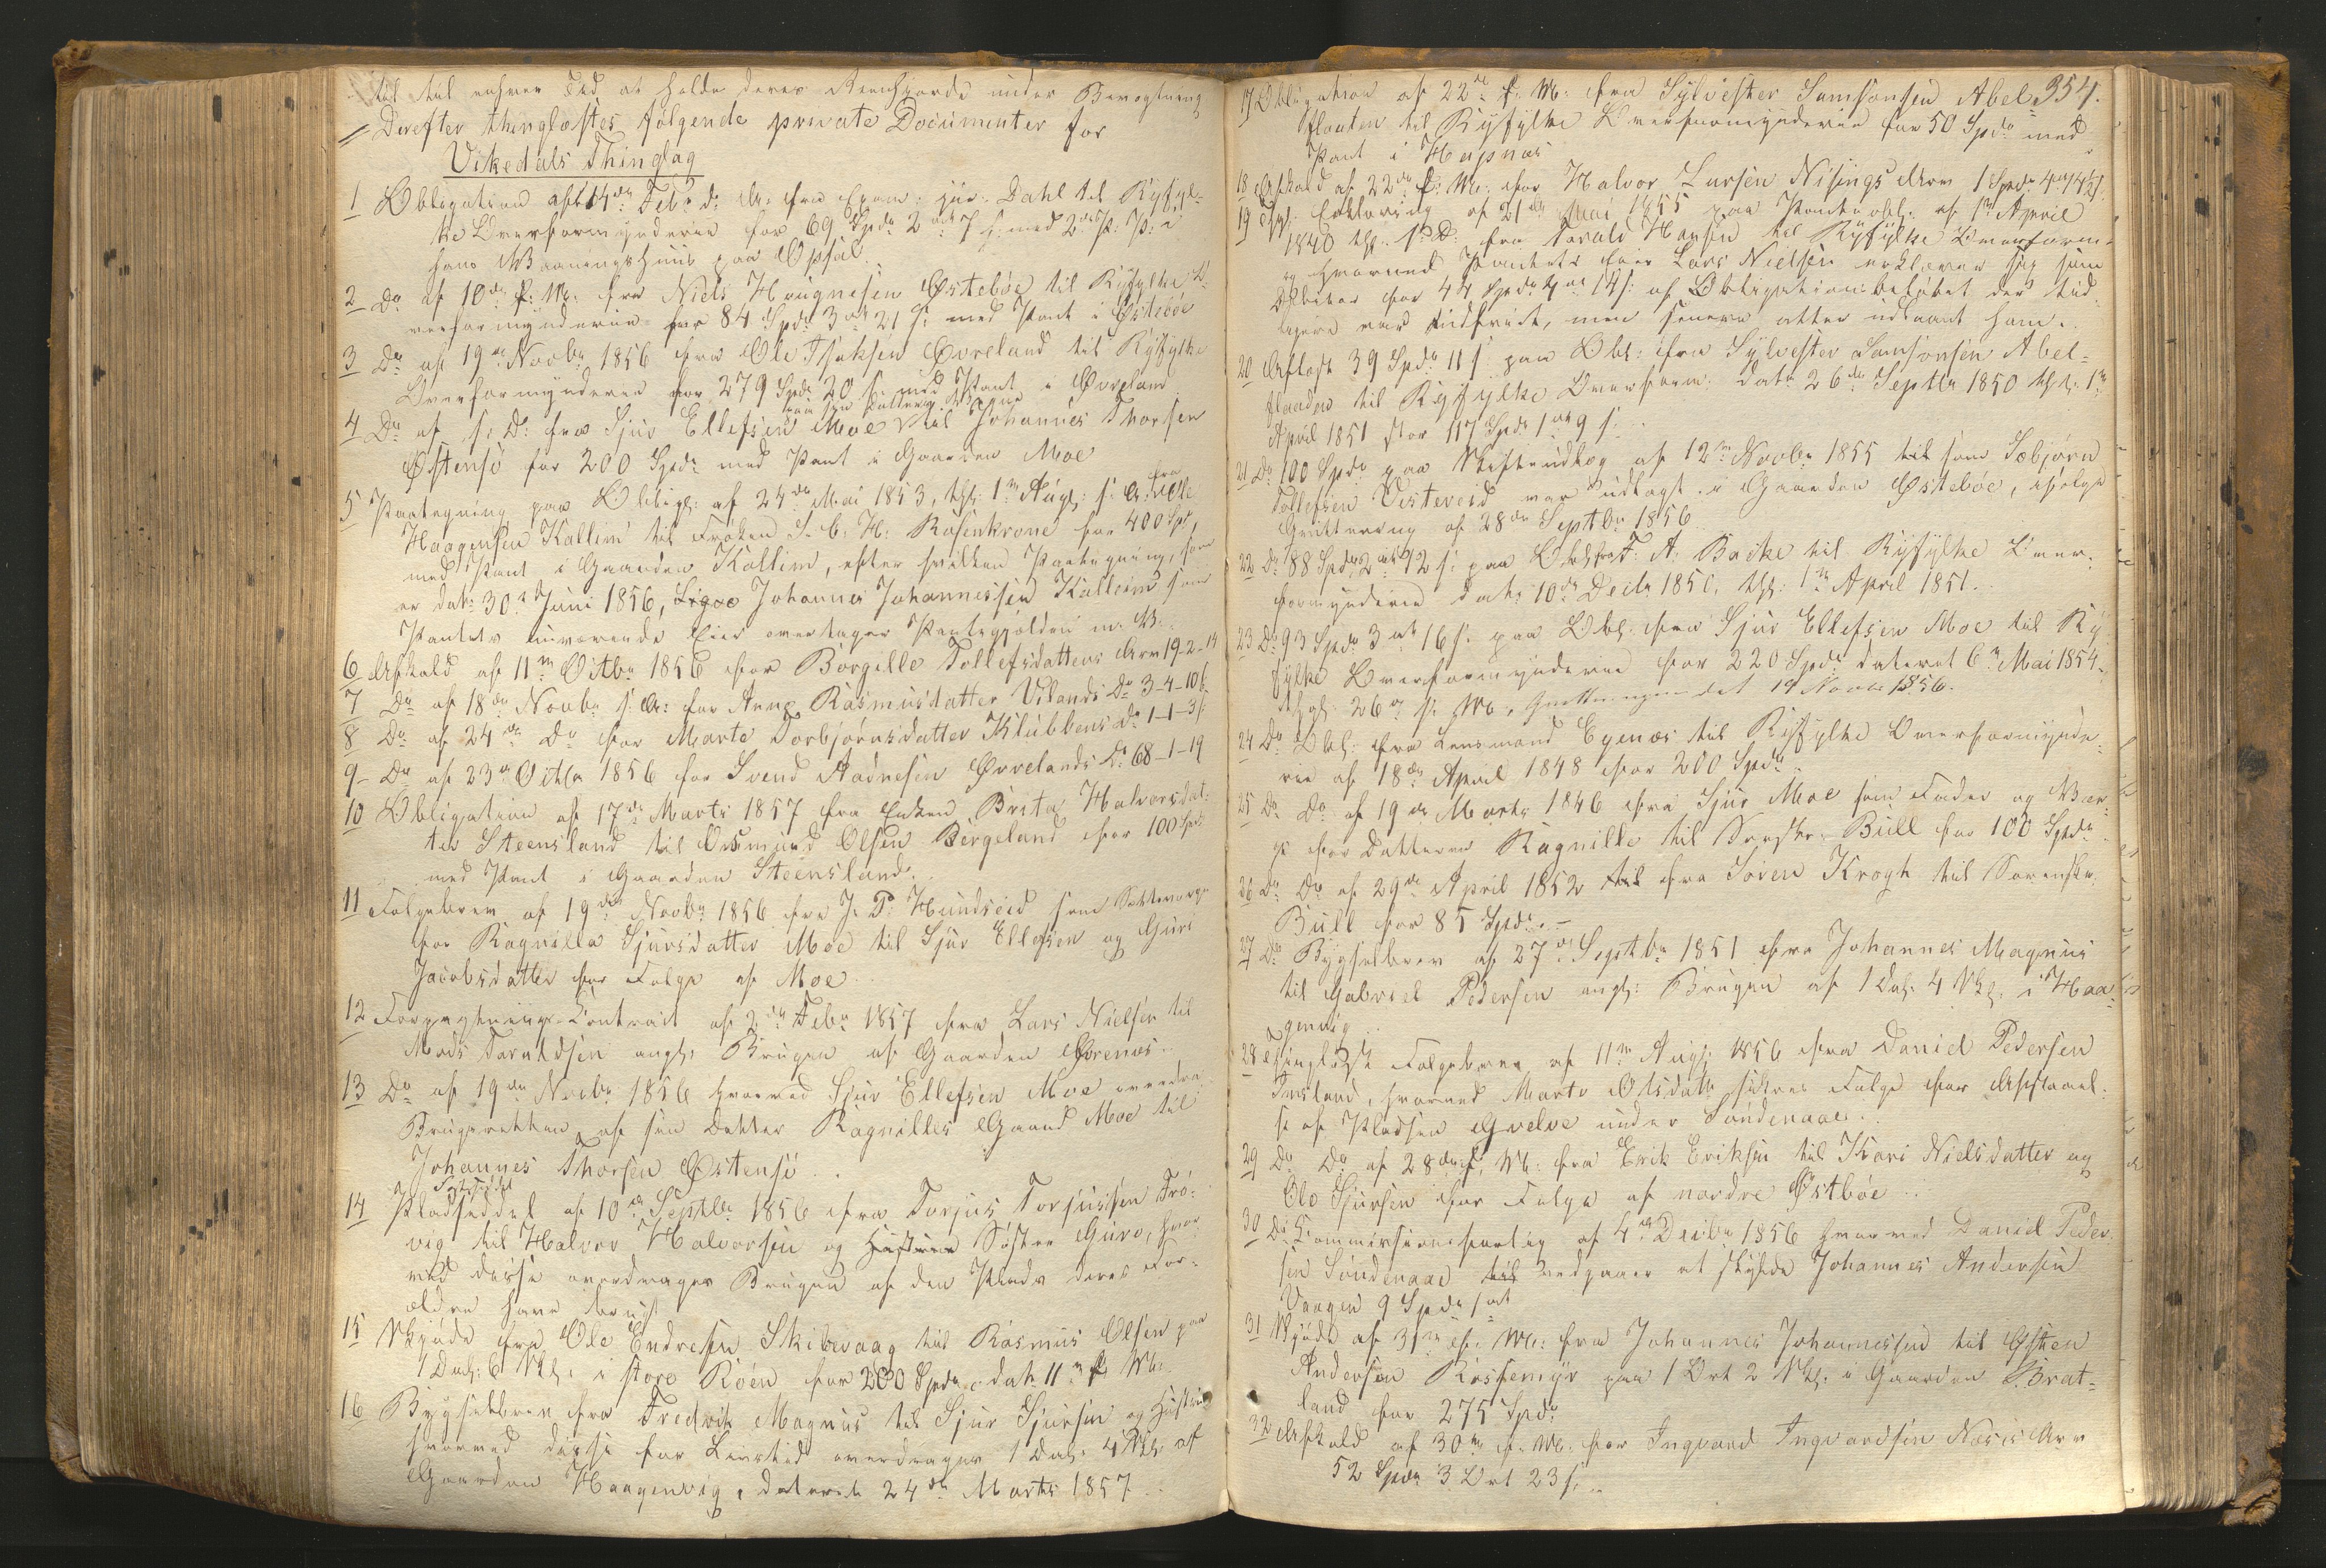 til til enhver Tid at holde deres Reenhjorde under Bevogtning
Derefter thinglæstes følgende private Documenter for
Vikedals Thinglag
1 Obligation af 14de Febr d: A: fra Exam: jur: Dahl til Ryfyl-
ke Overformynderie for 69 Spd 2 ort 7 s: med 2den Pr: P: i
hans Vaaningshuus paa Opsal
2 Do af 10de f: M: fra Niels Haugnesen Østebøe til Ryfylke O-
verformynderie for 84 Spd: 3 ort 21 s: med Pant i Østebøe
3 Do af 19de Novbr 1856 fra Ole Isaksen Øvreland til Ryfylke
Overformynderie for 279 Spd: 20 s: med Pant i Øvreland
4 Do af s: D: fra Sjur Ellefsen Moe paa sin Datters Vegne til Johannes Thorsen
Østensø for 200 Spd: med Pant i Gaarden Moe
5 Paategning paa Obligt: af 24de Mai 1853, thgl: 1ste Augt: s: A: fra Ole
Haagensen Kalleim til Frøken S. C. H: Rosenkrone for 400 Spd,
med Pant i Gaarden Kalleim, efter hvilken Paategning, som
er dat: 30te Juni 1856, Johannes Johannessen Kalleim som
Pantets nuværende Eier overtager Pantegjælden m: V:
6 Afkald af 11te Octbr 1856 for Borgille Tollefsdatters Arv 19-2-14
7 Do af 18de Novbr s: A: for Anne Rasmusdatter Vilands Do 3-4-10 s
8 Do af 24de Do for Marte Torbjørnsdatter Klubbens Do 1-1-3 s:
9 Do af 23de Octbr 1856 for Svend Aadnesen Øvrelands Do 68-1-19
10 Obligation af 17de Marts 1857 fra Enken Brita Halvorsdat-
ter Steensland til Osmund Olsen Bergeland for 100 Spd:
med Pant i Gaarden Steensland.
11 Følgebrev af 19de Novbr 1856 fra J. P. Hundseid som Sætteværge
for Ragnilla Sjursdatter Moe til Sjur Ellefsen og Guri
Jacobsdatter for Følge af Moe
12 Forpagtnings-Contract af 2den Febr 1857 fra Lars Nielsen til
Mads Taraldsen angl: Brugen af Gaarden Ørenæs
13 Do af 19de Novbr 1856 hvorved Sjur Ellefsen Moe overdra-
Brugsretten af sin Datter Ragnilles Gaard Moe til
Johannes Thorsen Østensø
14 Pladseddel af 10de Septbr 1856 fra Torjus Torjussen Frø-
vig til Halvor Halvorsen og Søster Guro, hvor-
ved disse overdrages Brugen af den Plads deres For-
ældre have brugt
15 Skjøde fra Ole Endresen Skibevaag til Rasmus Olsen paa
1 Dal: 6 Mk: i store Røen for 200 Spd: dat 11te f. M:
16 Bygselbrev fra Fredrik Magnus til Sjur Sjursen og Hustru
hvorved disse for Livstid overdrages 1 Dal: 4 Mk: af
Gaarden Haagenvig, dateret 24de Marts 1857
354.
17 Obligation af 22de f: M: fra Sylvester Samsonsen Abel-
flaaten til Ryfylke Overformynderie for 50 Spd: med
Pant i Hapnæs
18 Afkald af 22de f: M: for Halvor Larsen Nisings Arv 1 Spd: 4 ort 4½ s.
19 Erklæring af 21de Mai 1855 paa Panteobl: af 1ste April
1840 thgl: s: D: fra Tarald Hansen til Ryfylke Overform-
og hvorved Pantets Eier Lars Nielsen erklærer sig som
Debitor for 44 Spd 4 ort 14 s: af Obligationsbeløbet der tid-
ligere var indfriet, men senere atter udlaant ham.
20 Aflæst 39 Spd: 11 s paa Obl: fra Sylvester Samsonsen Abel-
flaaden til Ryfylke Overform: dat: 26de Septbr 1850 thgl: 1ste
April 1851 stor 117 Spd: 1 ort 9 s:
21 Do 100 Spd: paa Skifteudlæg af 12te Novbr 1855 som Sæbjørn
Tollefsen Vesteveid var udlagt i Gaarden Østebøe, ifølge
Qvittering af 28de Septbr 1856
22 Do 88 Spd: 2 ort 12 s: paa Obl: fra F: A: Backe til Ryfylke Over-
formynderie dat: 10de Decbr 1850, thgl: 1ste April 1851.
23 Do 93 Spd: 3 ort 16 s: paa Obl: fra Sjur Ellefsen Moe til Ry-
fylke Overformynderie for 220 Spd: dateret 6te Mai 1854,
thgl: 26de s: M:, Qvitteringen dat 19 Novbr 1856.
24 Do Obl: fra Lensmand Egenæs til Ryfylke Overformynde-
rie af 18de April 1848 for 200 Spd:
25 Do Do af 19de Marts 1846 fra Sjur Moe som Fader og Vær-
ge for Datteren Ragnille til Sorenskr: Bull for 100 Spd:
26 Do Do af 29de April 1852 fra Søren Krogh til Sorenskr:
Bull for 85 Spd: -
27 Do Bygselbrev af 27de Septbr 1851 fra Johannes Magnus
til Gabriel Pedersen angl: Brugen af 1 Dal: 4 Mk: i Haa-
genvig
28 Thinglæst Følgebrev af 11te Augt: 1856 fra Daniel Pedersen
Imsland, hvorved Marte Olsdatter sikres Følge for Afstaael-
se af Pladsen Qvelve under Søndenaae.
29 Do Do af 28de f: M: fra Erik Eriksen til Kari Nielsdatter og
Ole Sjursen for Følge af nordre Østbøe
30 Do Commissionsforlig af 4de Decbr 1856 hvorved Daniel Peder-
sen Søndenaae vedgaaer at skylde Johannes Andersen
Vaagen 9 Spd: 1 ort
31 Skjøde af 31te f: M: fra Johannes Johannessen til Østen
Andersen Rossemyr paa 1 Ort 2 Mk: i Gaarden Brat-
land for 275 Spd:
32 Afkald af 30te f: M: for Ingvard Ingvardsen Næs's Arv
52 Spd: 3 Ort 23 s: